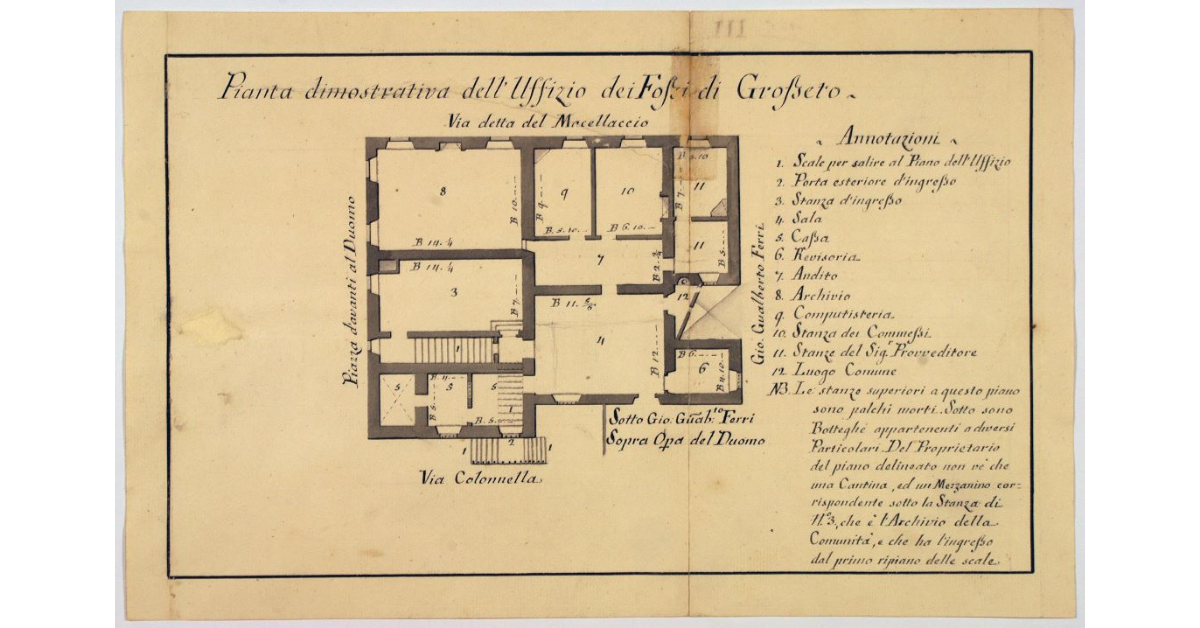 Pianta dimostrativa dell'Uffizio dei Foßi di Großeto
Via detta del Macellaccio
Piazza d'avanti al Duomo
8
B 10.
B 14. 4
9
B 9.
B. 5. 10.
10
B 6. 10.
B 5. 10
B 7.
11
11
B 5.
7
B 2. 3/4
B 14. 4
3
B 7.
B 11. 5/8
4
B 12.
12
B 6.
6
B 4. 10.
1
5
B 4.
5
B 5.
5
B. 5.
1
1
2
1
Gio. Gualberto Ferri.
Sotto Gio. Gualb.to Ferri
Sopra Opa del Duomo
Via Colonnella
Annotazioni
1. Scale per salire al Piano dell'Uffizio
2. Porta esteriore d'ingreßo
3. Stanza d'ingreßo
4. Sala
5. Caßa
6. Revisoria
7. Andito
8. Archivio
9. Computisteria
10. Stanza dei Commeßi
11. Stanze del Sig.r Provveditore
12. Luogo Comune
NB. Le stanze superiori a questo piano
sono palchi morti. Sotto sono
Botteghe appartenenti a diversi
Particolari. Del Proprietario
del piano delineato non v'è che
una Cantina, ed un Mezzanino cor:
rispondente sotto la Stanza di
N.o 3, che è l'Archivio della
Comunità, e che ha l'ingreßo
dal primo ripiano delle scale.